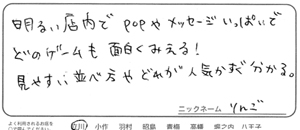 明るい店内で POPや メッセージ いっぱいで
どのゲームも 面白くみえる!
見やすい並べ方や どれが 人気かすぐ分かる。
ニックネーム りんご
よく利用されるお店を
○で囲んでください。
立川 小作 羽村 昭島 青梅 高幡 堀之内 八王子